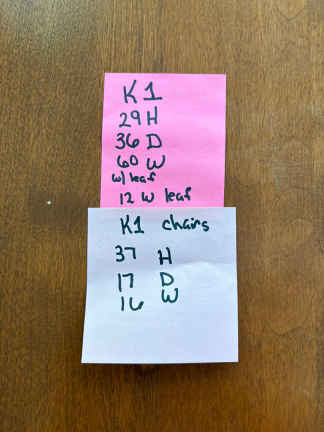 K1
29 H
36 D
60 W
w/ leaf
12 W leaf
K1 chairs
37 H
17 D
16 W